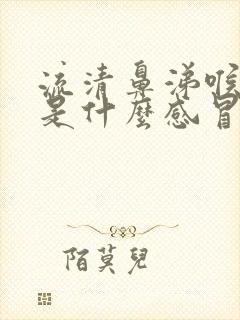 流清鼻涕喉
是什麼感冒
陌莫兒